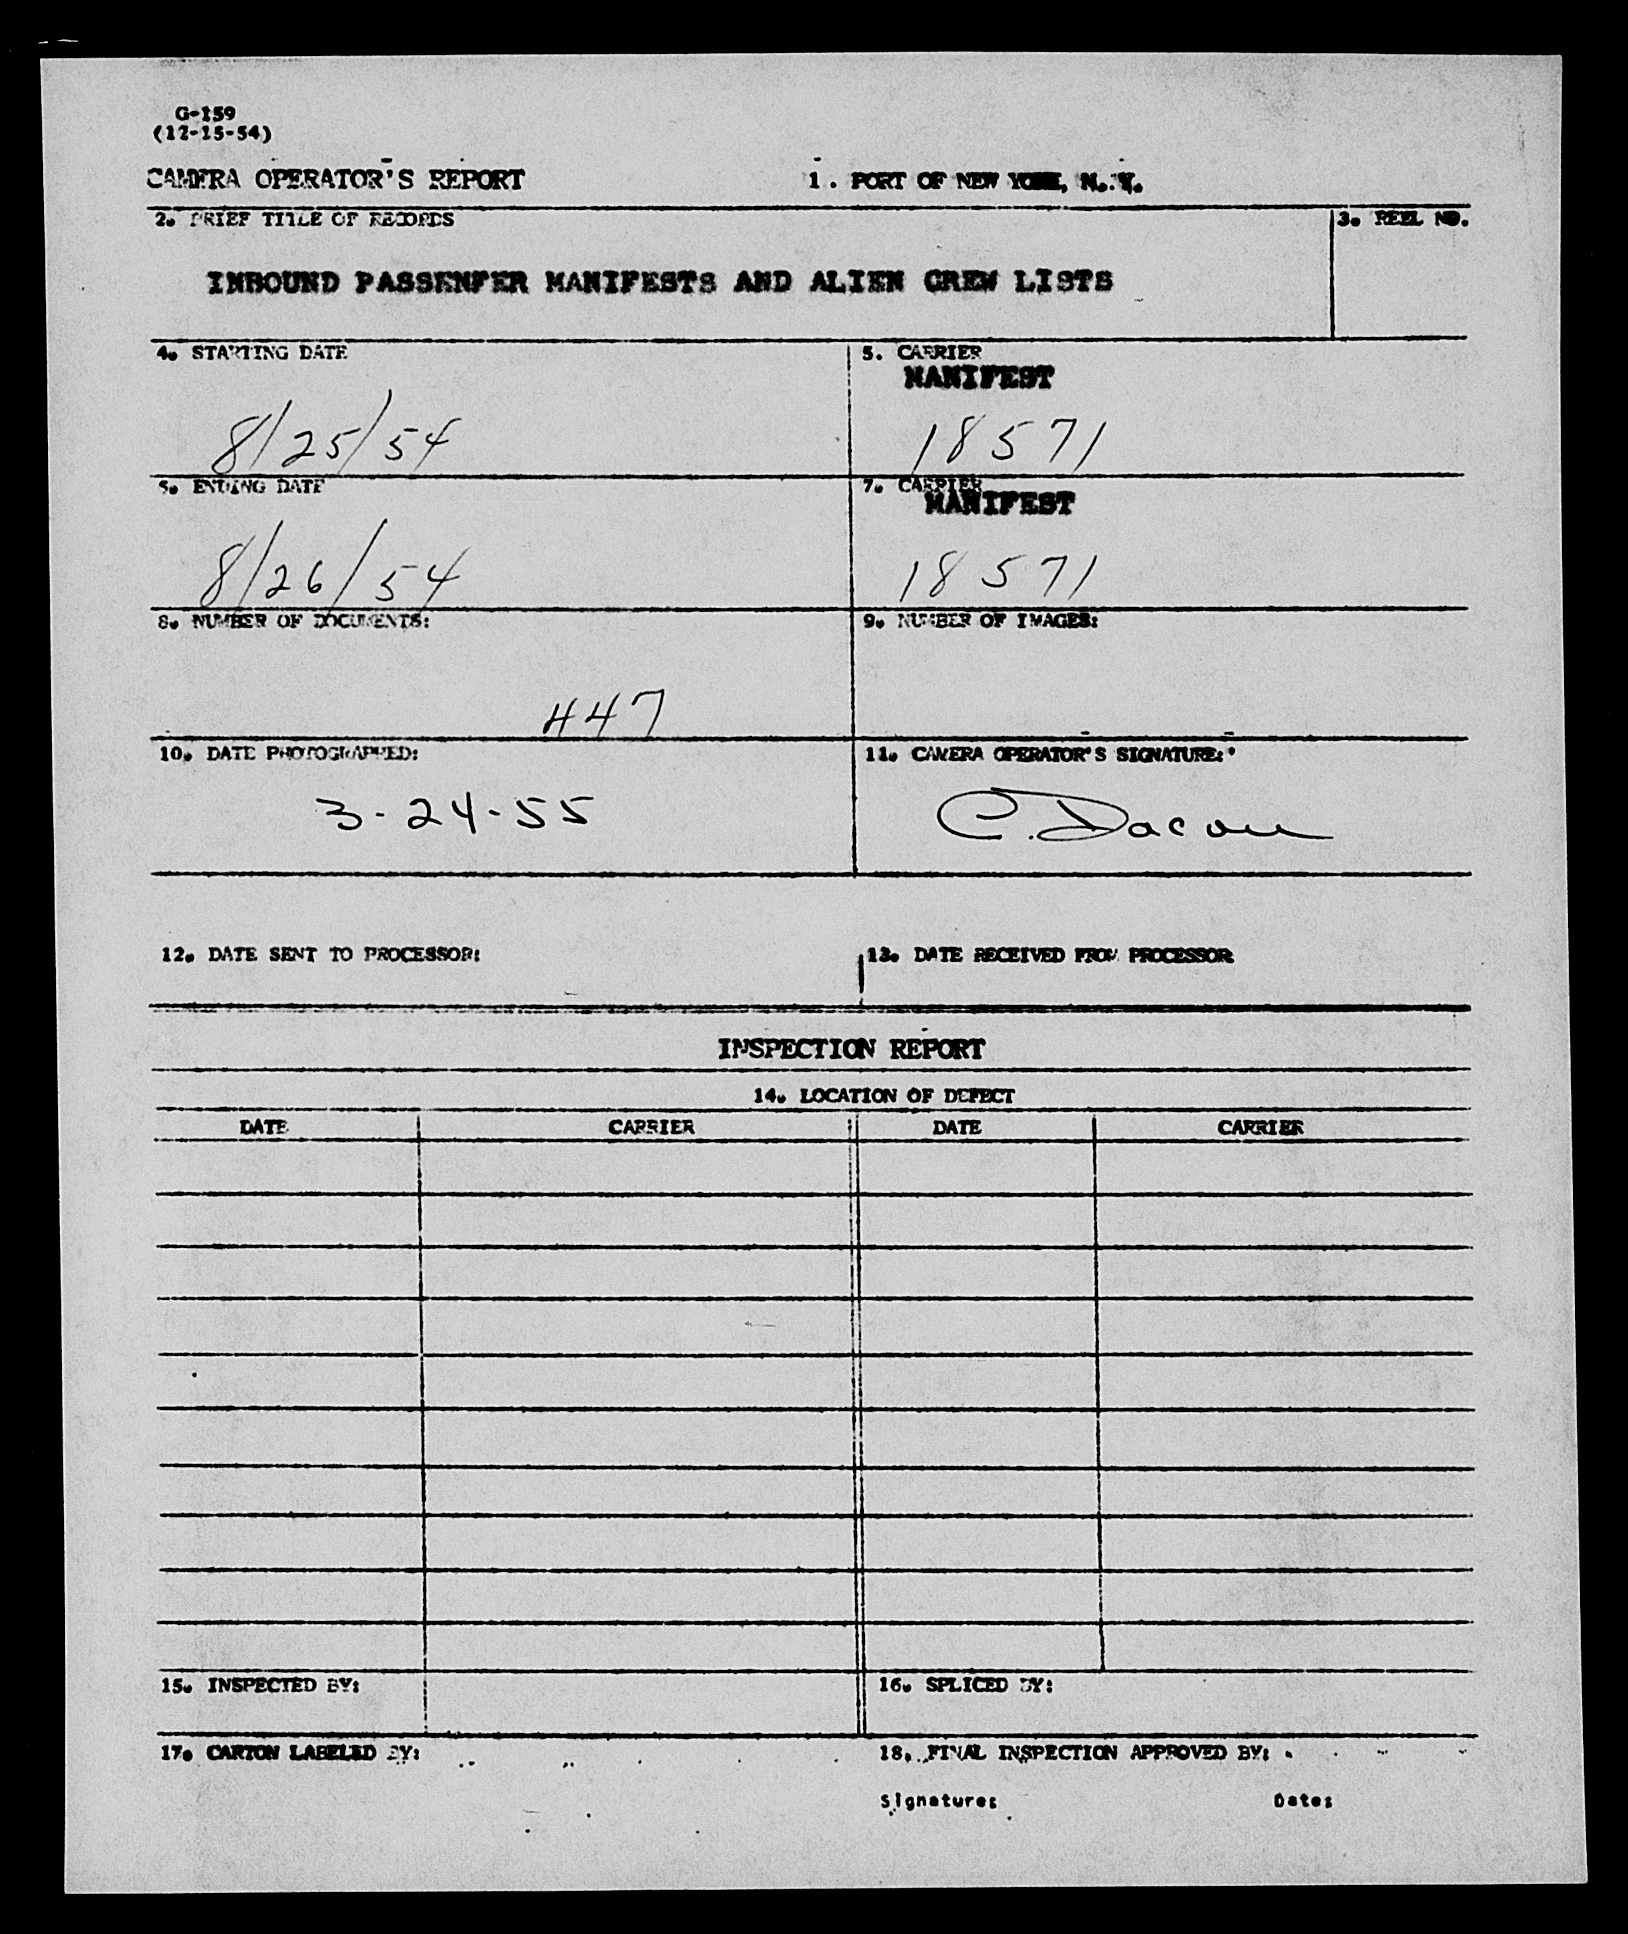 G-159
(12-15-54)
CAMERA OPERATOR'S REPORT 1. PORT OF NEW YORK, N. Y.
2. BRIEF TITLE OF RECORDS 3. REEL NO.
INBOUND PASSENFER MANIFESTS AND ALIEN CREW LISTS
4. STARTING DATE 5. CARRIER
MANIFEST
8/25/54 18571
5. ENDING DATE 7. CARRIER
MANIFEST
8/26/54 18571
8. NUMBER OF DOCUMENTS: 9. NUMBER OF IMAGES:
447
10. DATE PHOTOGRAPHED: 11. CAMERA OPERATOR'S SIGNATURE:
3-24-55 C.
12. DATE SENT TO PROCESSOR: 13. DATE RECEIVED FROM PROCESSOR
INSPECTION REPORT
14. LOCATION OF DEFECT
DATE CARRIER DATE CARRIER
15. INSPECTED BY: 16. SPLICED BY:
17. CARTON LABELED BY: 18. FINAL INSPECTION APPROVED BY:
Signature: Date: